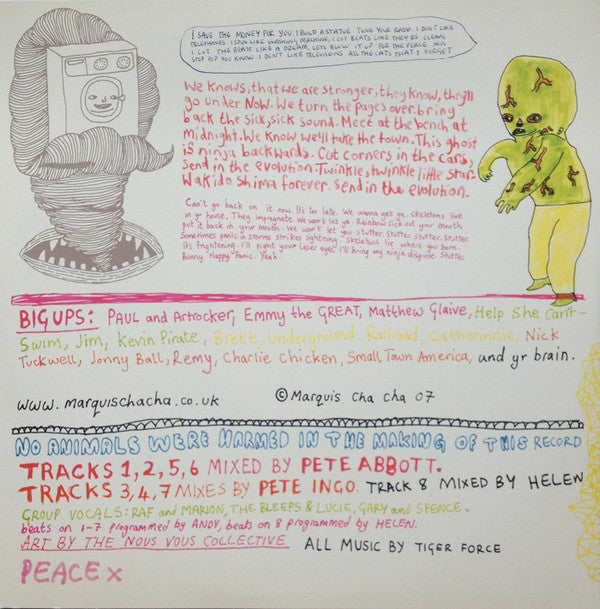 I SAVE THE MONEY FOR YOU I BUILD A STATUE. TUNE YOUR RADIO. I DON'T LIKE
TELEPHONES. I SPIN LIKE WASHING MACHINE, I CUT BEATS LIKE THEY'RE CLEAN,
I CUT THE BEATS LIKE A DREAM, LETS BLOW IT UP FOR THE PEACE NOW
STOP YOU KNOW I DON'T LIKE TELEVISIONS. ALL THE CATS THAT I FORGET
We knows, that we are stronger, they know, they'll
go under NOW. We turn the pages over. bring
back the sick, sick sound. Meet at the bench at
midnight. We know we'll take the town. This ghost
is ninja backwards. Cut corners in the cars,
send in the evolution. Twinkle, twinkle little star.
Wakido Shima forever. Send in the evolution.
Can't go back on it now. Its too late. We wanna get ya. Skeletons live
in yr house. They impregnate. We won't let ya. Rainbow sick out your mouth
put it back in your mouth. We won't let you stutter. Stutter. Stutter. Stutter.
Sometimes panic a storms strikes lightning. Skeletons lie where you burn.
Its frightening. I'll fight your laser eyes, I'll bring my ninja disguise. Stutter.
Bunny. Happy. Panic. Yeah.
BIG UPS: PAUL and Artrocker, Emmy the GREAT, Matthew Glaive, Help She Can't-
Swim, Jim, Kevin Pirate, Brett, Underground Railroad, Catherinnie, Nick
Tuckwell, Jonny Ball, Remy, Charlie Chicken, Small Town America, and yr brain.
www.marquischacha.co.uk ©Marquis Cha cha 07
NO ANIMALS WERE HARMED IN THE MAKING OF THIS RECORD
TRACKS 1, 2, 5, 6 MIXED BY PETE ABBOTT.
TRACKS 3, 4, 7 MIXES BY PETE INGO. TRACK 8 MIXED BY HELEN
GROUP VOCALS: RAF and MARION, THE BLEEPS & LUCIE, GARY and SPENCE.
beats on 1-7 programmed by ANDY, beats on 8 programmed by HELEN.
ART BY THE NOUS VOUS COLLECTIVE ALL MUSIC BY TIGER FORCE
PEACE x